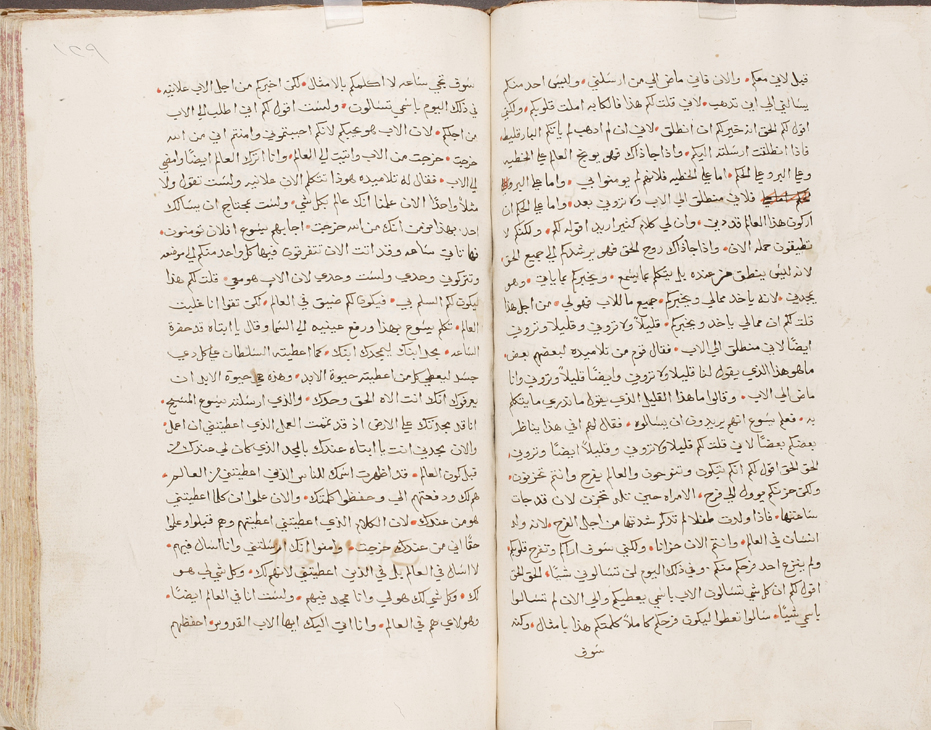 قبل لاني معكم • والان فاني ماضي الي من ارسلني • وليس احد منكم
يسالني الي اين تذهب • لاني قلت لكم هذا فالكابه املت قلوبكم • ولكني
اقول لكم الحق انه خير لكم ان انطلق • لاني ان لم اذهب لم ياتكم البارقليط
فاذا انطلقت ارسلته اليكم • واذا جا ذاك فهو يوبخ العالم علي الخطيه
وعلي البر وعلي الحكم • اما علي الخطيه فلانهم لم يومنوا بي • واما علي البر
فلاني منطلق الي الاب ولا تروني بعد • واما علي الحكم ان
اركون هذا العالم قد دين • وان لي كلام كثير اريد اقوله لكم • ولكنكم لا
تطيقون حمله الان • واذا جا ذاك روح الحق فهو يرشدكم الي جميع الحق
لانه ليس ينطق من عنده بل يتكلم بما يسمع • ويخبركم بما ياتي • وهو
يمجدني • لانه ياخد ممالي ويخبركم • جميع ما للاب فهو لي • من اجل هذا
قلت لكم ان ممالي ياخد ويخبركم • قليلاً ولا تروني وقليلا وتروني
ايضًا لاني منطلق الي الاب • فقال قوم من تلاميده لبعضهم بعض
ما هو هذا الذي يقول لنا قليلا ولا تروني وايضًا قليلاً وتروني وانا
ماضي الي الاب • وقالوا ما هذا القليل الذي يقول ما ندري ما يتكلم
به • فعلم يسوع انهم يريدون ان يسالوه • فقال لهم افي هذا يناظر
بعضكم بعضًا لاني قلت لكم قليلا ولا تروني • وقليلاً ايضًا وتروني
الحق الحق اقول لكم انكم تبكون وتنوحون والعالم يفرح وانتم تحزنون •
ولكن حزنكم يوول الي فرح • الامراه حين تلد تحزن لان قد جات
ساعتها • فاذا ولدت طفلا لم تدكر شدتها من اجل الفرح • لانه ولد
انسان في العالم • وانتم الان حزانا • ولكني سوف اراكم وتفرح قلوبكم
ولم ينزع احد فرحكم منكم • وفي ذلك اليوم لن تسالوني شيًا • الحق الحق
اقول لكم ان كل شي تسالون الاب باسمي يعطيكم والي الان لم تسالوا
باسمي شيئًا • سالوا تعطوا ليكون فرحكم كاملاً كلمتكم هذا بامثال • ولكنه
سوف
١٤٩
سوف تجي ساعه لا اكلمكم بالامثال • لكن اخبركم من اجل الاب علانيه •
في ذلك اليوم باسمي تسالون • ولست اقول لكم اني اطلب الي الاب
من اجلكم • لان الاب هو يحبكم لانكم احببتوني وامنتم اني من الله
خرجت • خرجت من الاب واتيت الي العالم • وانا اترك العالم ايضًا وامضي
الي الاب • فقال له تلاميده هوذا تتكلم الان علانيه ولست تقول ولا
مثلاً واحدًا الان علمنا انك عالم بكل شي • ولست تحتاج ان يسالك
احد • بهذا نومن انك من الله خرجت • اجابهم يسوع افلان تومنون •
انها تاتي ساعه وقد اتت الان تتفرقون فيها كل واحد منكم الي موضعه
وتتركوني وحدي ولست وحدي لان الاب هو معي • قلت لكم هذا
ليكون لكم السلم بي • فيكون لكم ضيق في العالم • لكن تقوا انا غلبت
العالم • تكلم يسوع بهذا ورفع عينيه الي السما وقال يا ابتاه قد حضرة
الساعه • مجد ابنك ليمجدك ابنك • كما اعطيته السلطان علي كل دي
جسد ليعطي كل من اعطيته حيوة الابد • وهذه هي حيوة الابد ان
يعرفوك انك انت الاه الحق وحدك • والذي ارسلته يسوع المسيح •
انا قد مجدتك علي الارض اذ قد تممت العمل الذي اعطيتني ان اعمل •
والان مجدني انت يا ابتاه عندك بالمجد الذي كان لي عندك من
قبل كون العالم • قد اظهرت اسمك للناس الذي اعطيتني من العالم •
هم لك ودفعتهم الي وحفظوا كلمتك • والان علموا ان كلما اعطيتني
هو من عندك • لان الكلام الذي اعطيتني اعطيتهم وهم قبلوا وعلموا
حقًا اني من عندك خرجت • وامنوا انك ارسلتني وانا اسال فيهم •
لا اسال في العالم بل في الذين اعطيتني لانهم لك • وكل شي لي هو
لك • وكل شي لك هو لي وانا ممجد فيهم • ولست انا في العالم ايضًا •
وهولاي هم في العالم • وانا اتي اليك ايها الاب القدوس احفظهم